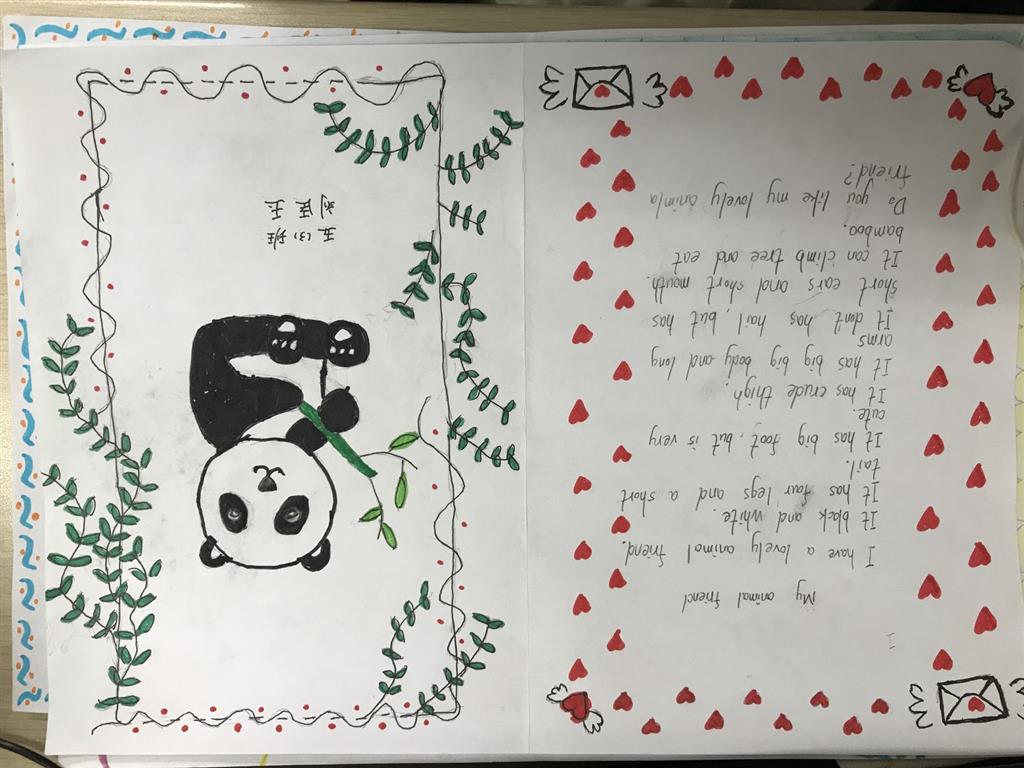 My animal friend
I have a lovely animal friend.
It black and white.
It has four legs and a short
tail.
It has big foot, but is very
cute.
It has crude thigh.
It has big big body and long
arms
It don't has hail, but has
short ears and short mouth.
It can climb tree and eat
bamboo.
Do you like my lovely animla
friend?
五(3)班